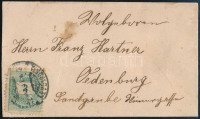 Wolgeboren
Herrn Franz Hartner
Oedenburg
Sandgrube